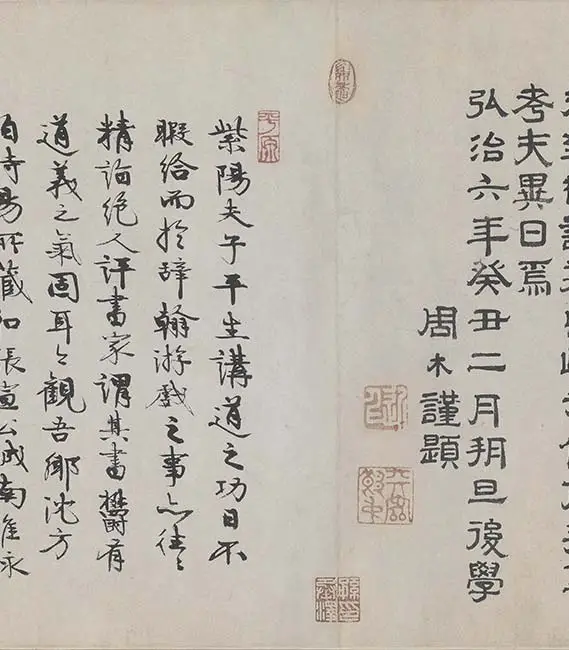 考夫異日焉
弘治六年癸丑二月朔旦後學
周木謹題
平原
紫陽夫子平生講道之功日不
暇給而於辭翰游戲之事亦往〻
精詣絕人評書家謂其書欝有
道義之氣固耳今觀吾鄉沈方
伯時暘所藏和張宣公城南雜詠